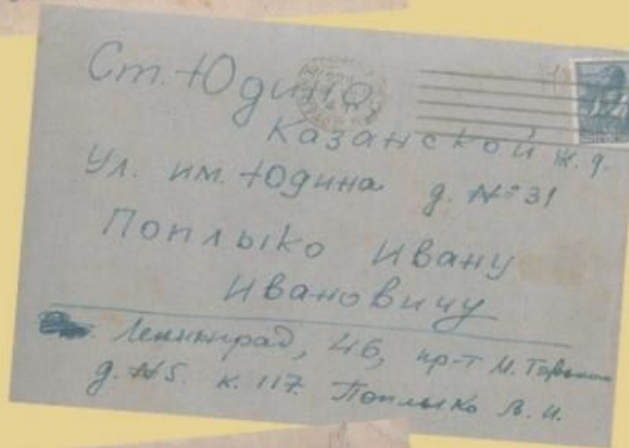 Ст. Юдино,
Казанской ж.д.
Ул. им. Юдина д. № 31
Поплыко Ивану
Ивановичу
Ленинград, 46, пр-т М. Горького
д. №5. к. 117. Поплыко Л. И.